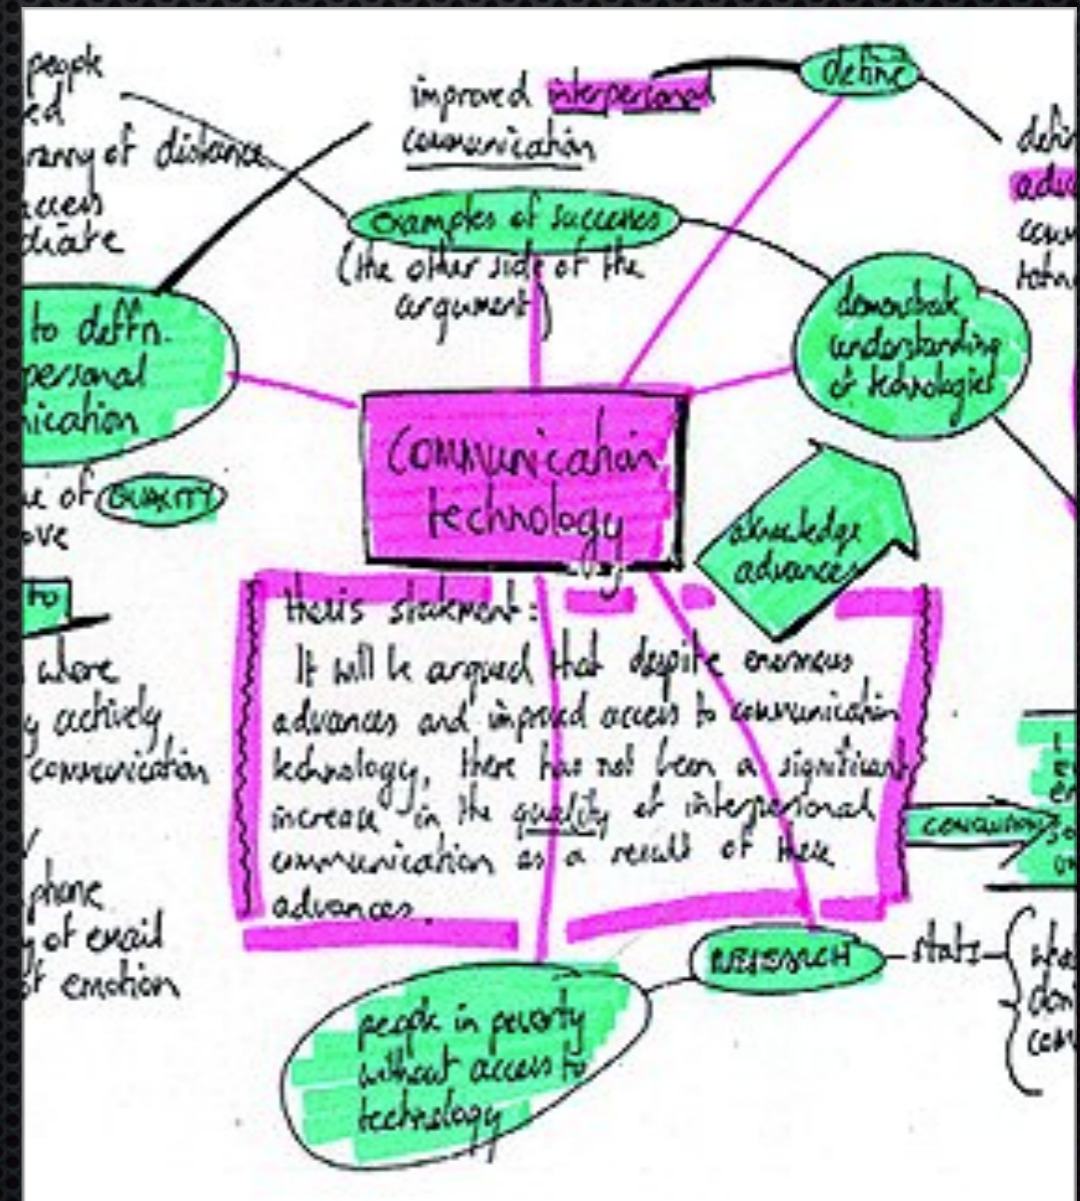 people
ed
ranny of distance
access
diate
improved interpersonal
communication
define
defin
adv
com
examples of successes
(the other side of the
argument)
demonstrate
understanding
of technologies
to deffn.
personal
nication
of QUALITY
ove
Communication
technology
aknowledge
advances
to
where
y actively
communication
phone
y of email
of emotion
thesis statement:
It will be argued that despite enormous
advances and improved access to communication
technology, there has not been a significant
increase in the quality of interpersonal
communication as a result of these
advances.
CONCLUSION
RESEARCH
stats
people in poverty
without access to
technology